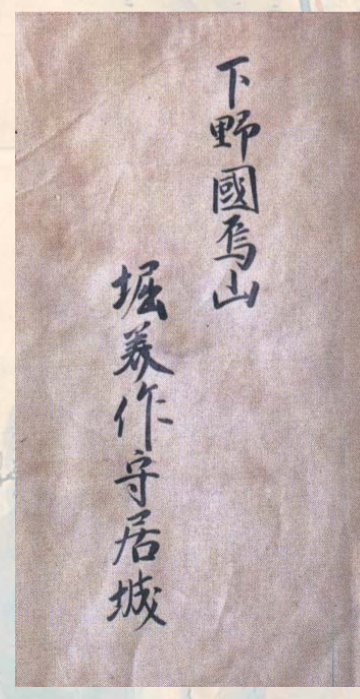 下野國烏山
堀美作守居城